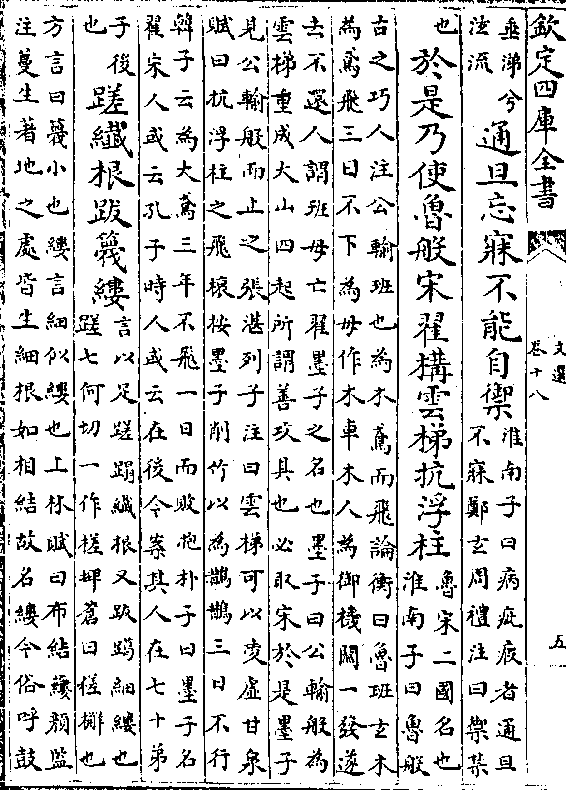 欽定四庫全書
文選
卷十八
五
垂涕兮
泫流
通旦忘寐不能自禦
淮南子曰病疵瘕者通旦
不寐鄭玄周禮注曰禦禁
也
於是乃使魯般宋翟構雲梯抗浮柱
魯宋二國名也
淮南子曰魯般
古之巧人注公輸班也為木鳶而飛論衡曰魯班玄木
為鳶飛三日不下為母作木車木人為御機關一發遂
去不還人謂班母亡翟墨子之名也墨子曰公輸般為
雲梯重成大山四起所謂善攻具也必取宋於是墨子
見公輸般而止之張湛列子注曰雲梯可以凌虛甘泉
賦曰抗浮柱之飛榱按墨子削竹以為鵲鵲三日不行
韓子云為大鳶三年不飛一日而敗抱朴子曰墨子名
翟宋人或云孔子時人或云在後今案其人在七十弟
子後
也
蹉纖根跋篾縷
言以足蹉蹋纖根又跋躡細縷也
蹉七何切一作槎埤蒼曰槎㭨也
方言曰蔑小也縷言細似縷也上林賦曰布結縷顔監
注蔓生著地之處皆生細根如相結故名縷今俗呼鼓